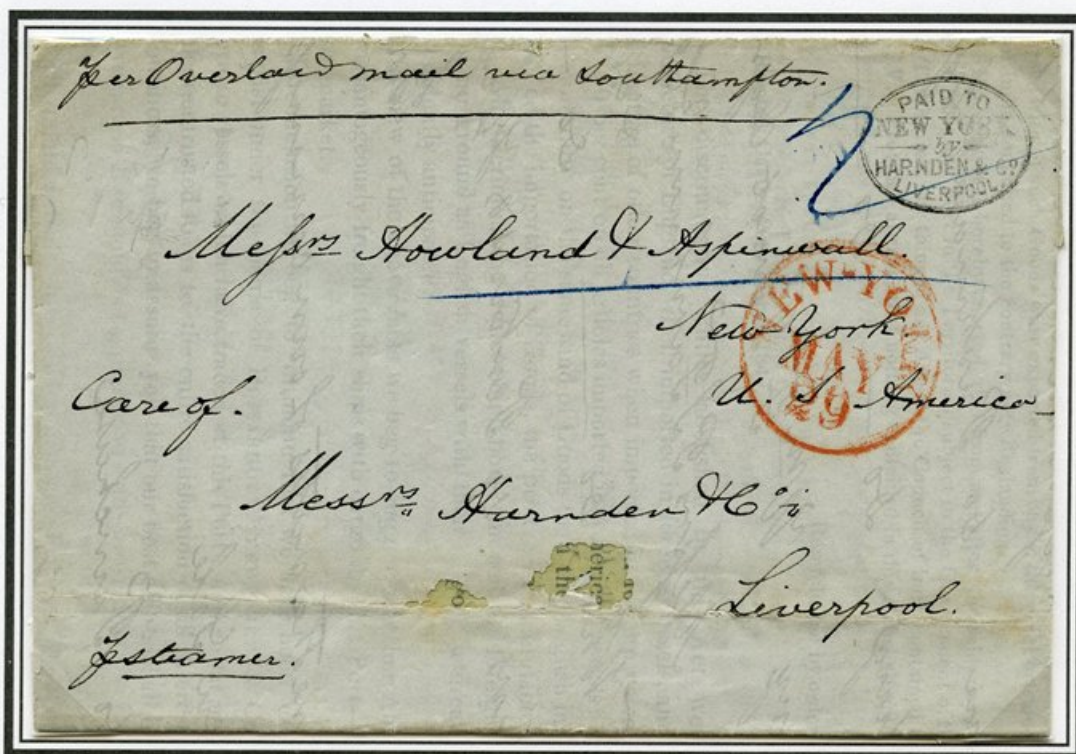 Per Overland mail via Southampton.
PAID TO
NEW YORK
by
HARNDEN & Co
LIVERPOOL
Messrs Howland & Aspinwall.
New York.
NEW-YORK
MAY
29
U. S. America
Care of.
Messrs Harnden & Co
Liverpool.
P steamer.